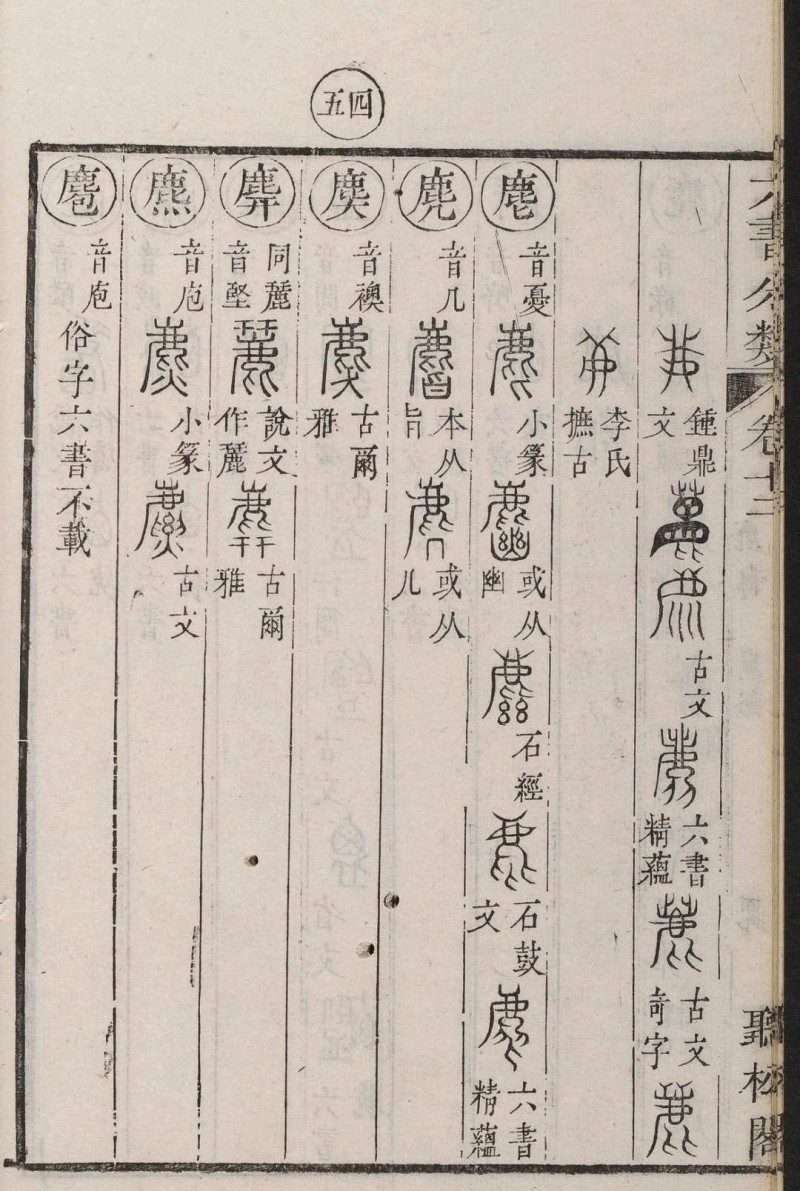 四五
六書分類 卷十二 聽松閣
鍾鼎文 古文 六書精蘊 古文奇字
李氏摭古
麀 音憂 小篆 或从幽 石經 石鼓文 六書精蘊
麂 音几 本从旨 或从几
音襖 古爾雅
麉 同麗音堅 說文作麗 古爾雅
麃 音庖 小篆 古文
麅 音庖 俗字六書不載